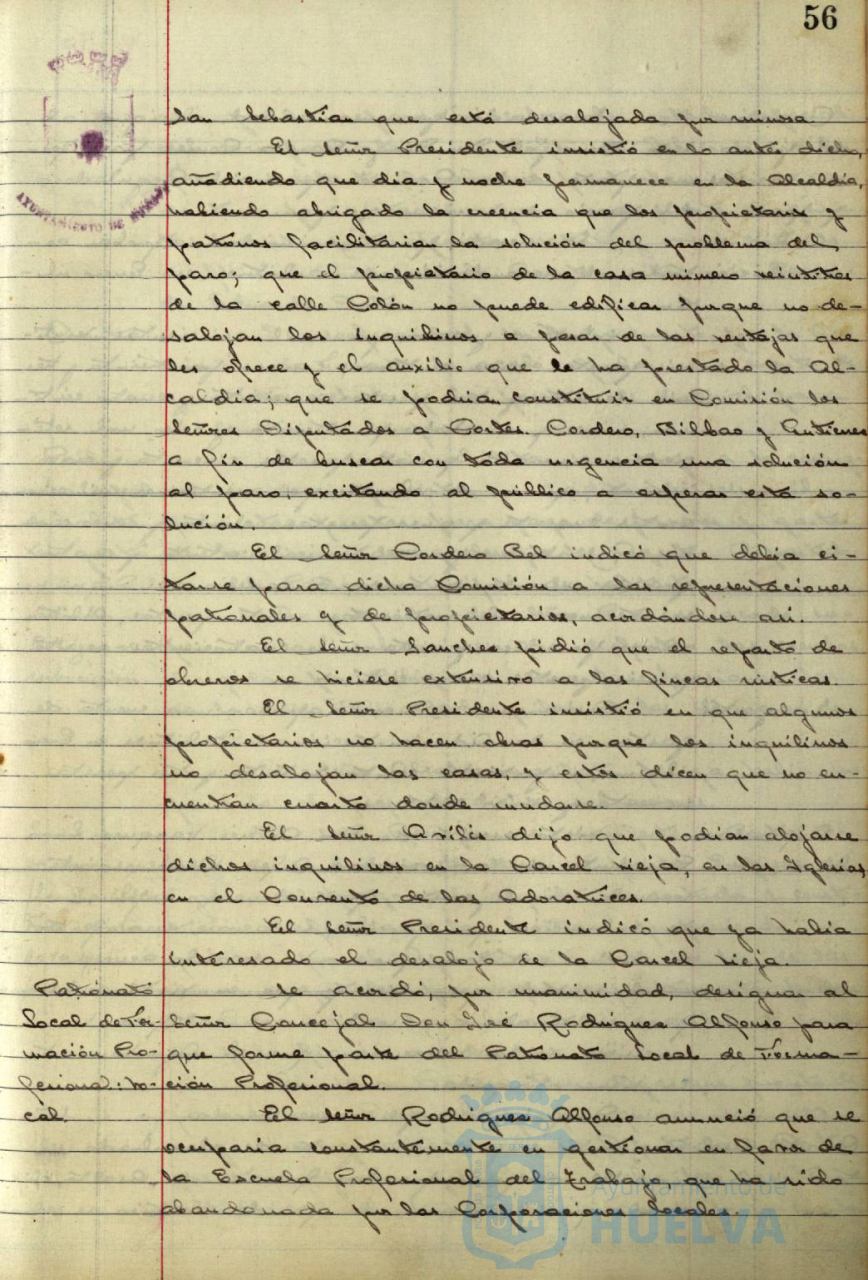 56
AYUNTAMIENTO DE HUELVA
San Sebastian que está desalojada por ruinosa.
El Señor Presidente insistió en lo antes dicho,
añadiendo que dia y noche permanece en la Alcaldía,
habiendo abrigado la creencia que los propietarios y
patronos facilitarian la solución del problema del
paro; que el propietario de la casa número veintitres
de la calle Colón no puede edificar porque no de-
salojan los inquilinos a pesar de las ventajas que
les ofrece y el auxilio que le ha prestado la Al-
caldía; que se podrian constituir en Comisión los
Señores Diputados a Cortes. Cordero, Bilbao y Gutierrez
a fin de buscar con toda urgencia una solución
al paro, excitando al público a esperar esta so-
lución.
El Señor Cordero Bel indicó que debia ci-
tarse para dicha Comisión a las representaciones
patronales y de propietarios, acordándose asi.
El Señor Sanchez pidió que el reparto de
obreros se hiciese extensivo a las fincas rústicas.
El Señor Presidente insistió en que algunos
propietarios no hacen obras porque los inquilinos
no desalojan las casas, y estos dicen que no en-
cuentran cuarto donde mudarse.
El Señor Avilés dijo que podian alojarse
dichos inquilinos en la Carcel vieja, en las Iglesias,
en el Convento de las Adoratrices.
El Señor Presidente indicó que ya habia
interesado el desalojo de la Carcel vieja.
Patronato
Local de For-
mación Pro-
fesional: vo-
cal.
Se acordó, por unanimidad, designar al
Señor Concejal Don José Rodriguez Alfonso para
que forme parte del Patronato Local de Forma-
ción Profesional.
El Señor Rodriguez Alfonso anunció que se
ocuparia constantemente en gestionar en favor de
la Escuela Profesional del Trabajo, que ha sido
abandonada por las Corporaciones Locales.
Ayuntamiento de
HUELVA